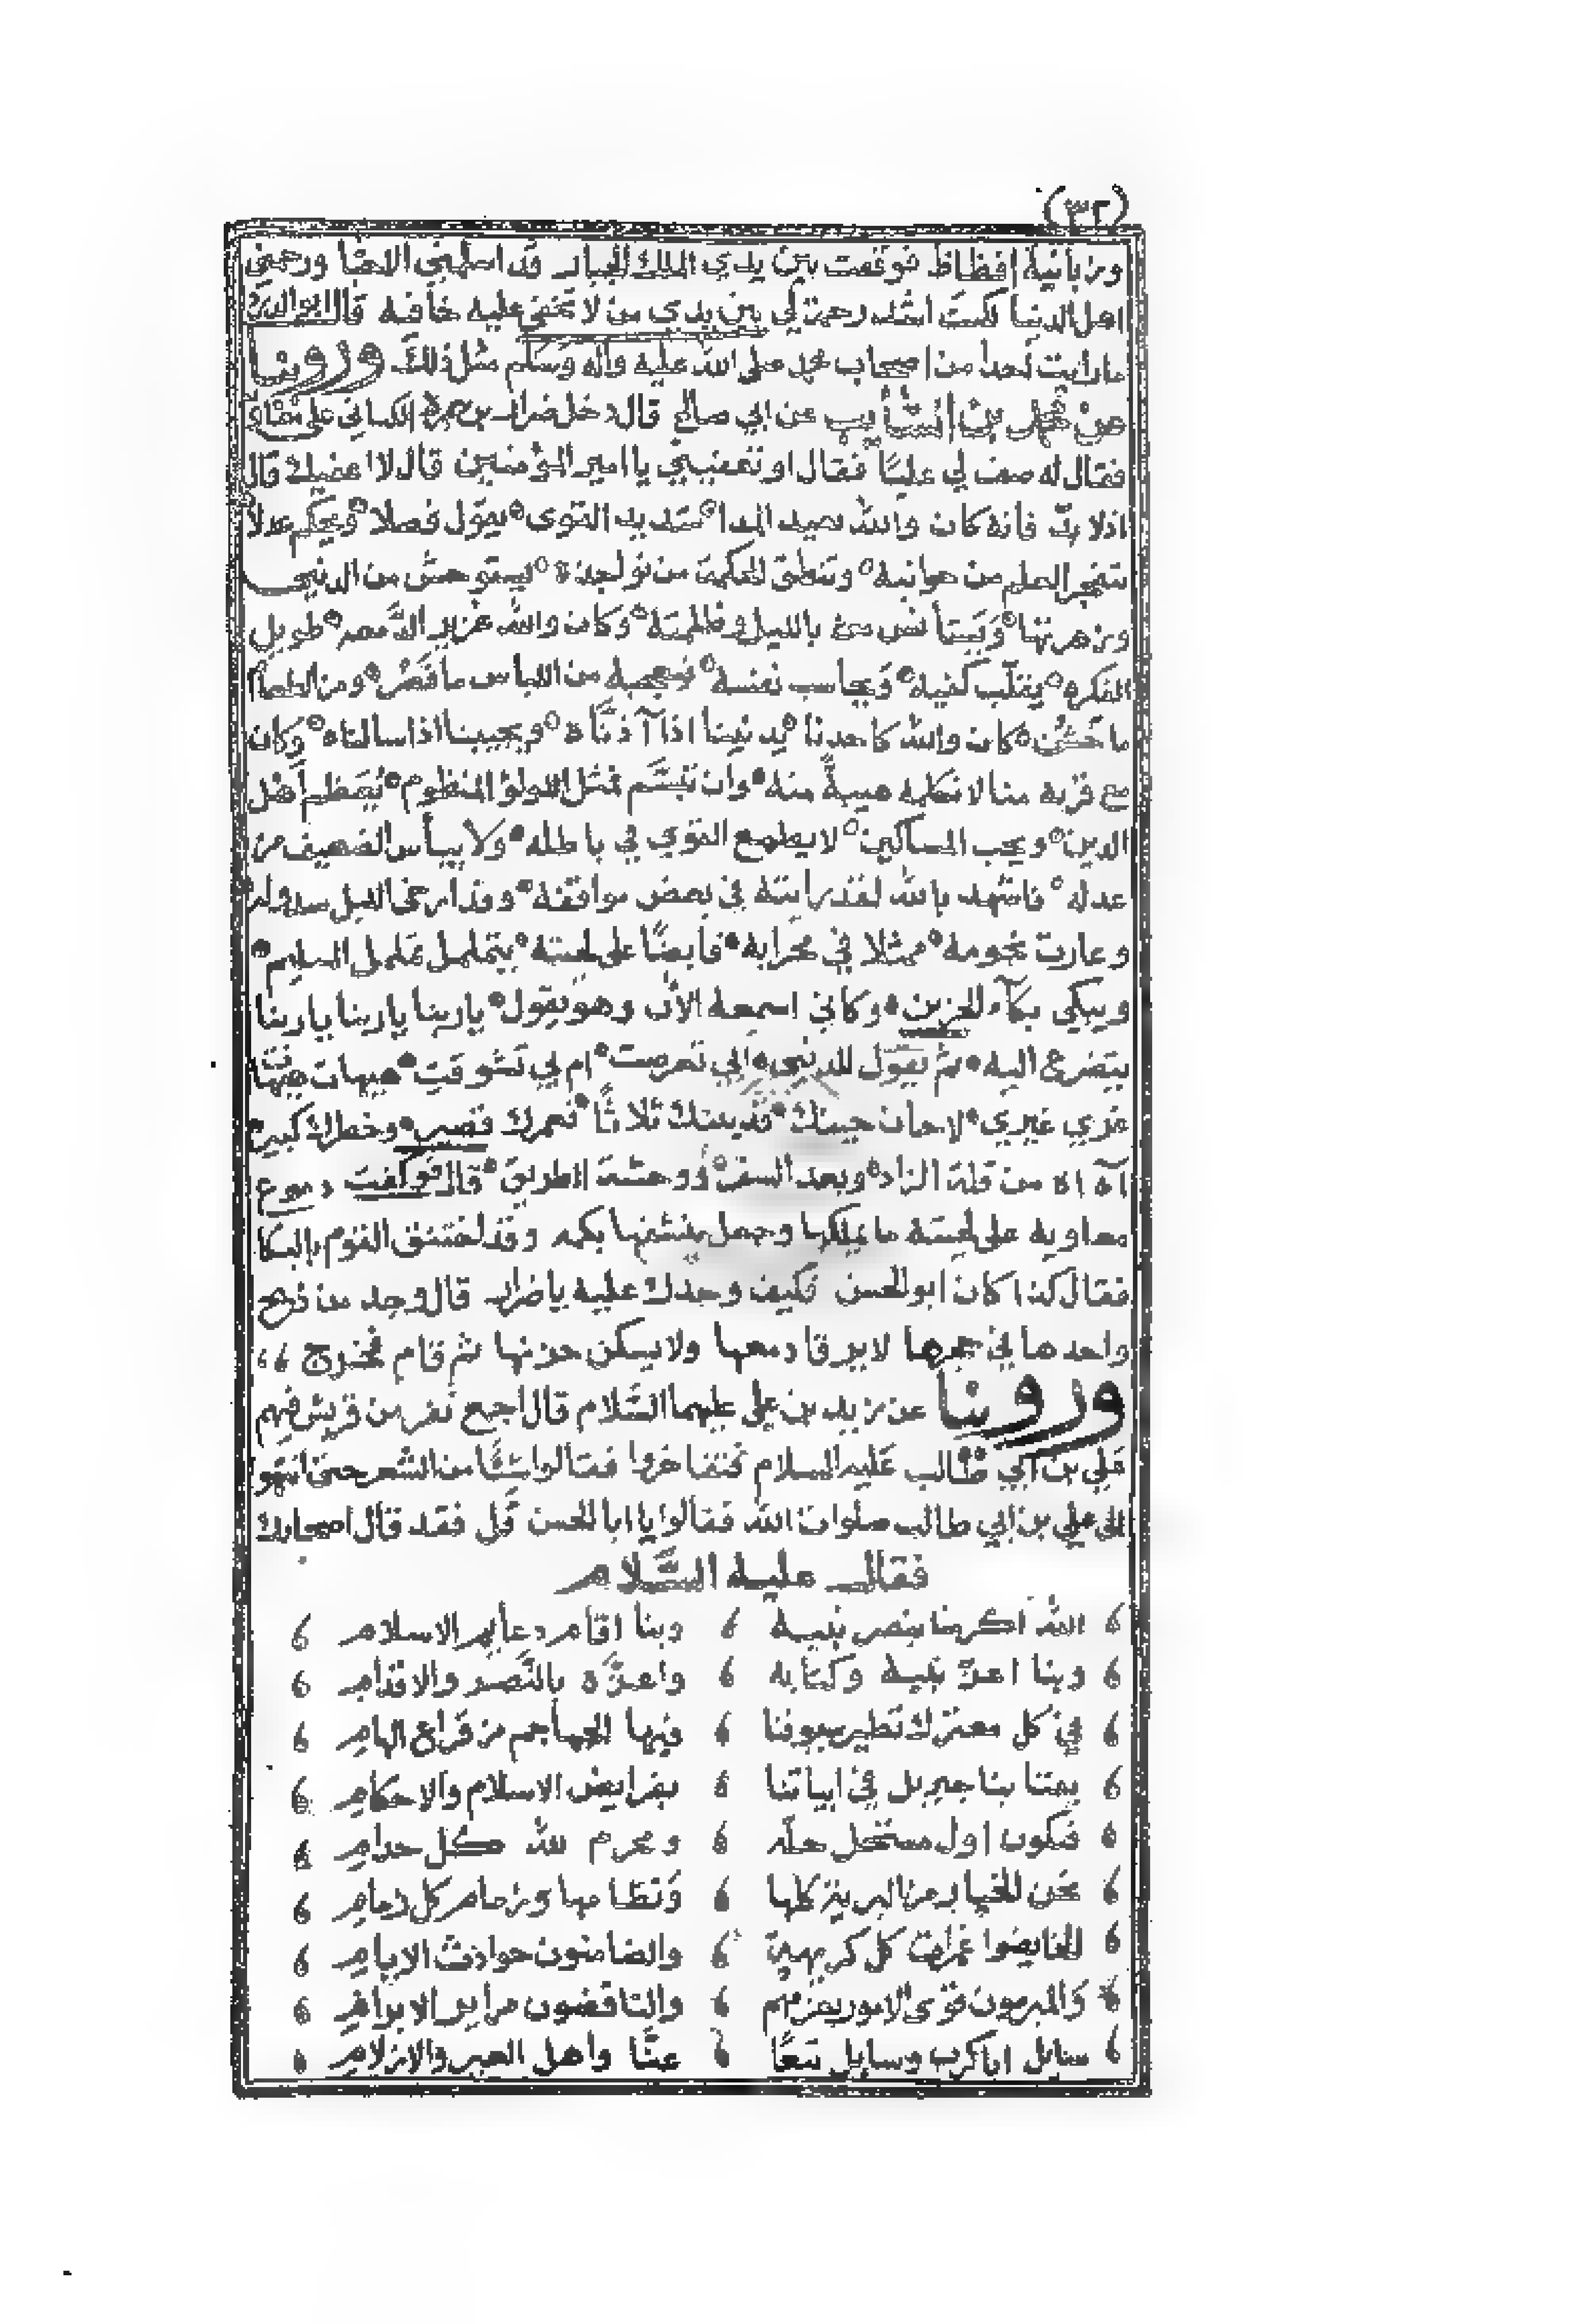 (٣٢)
وزبانية افظاظ فوقفت بين يدي الملك الجبار قد اسلمني الاحبا ورحمني
اهل الدنيا لكنت اشد رحمة لي بين يدي من لا تخفى عليه خافيه قال ابو الدردا
ما رايت احدا من اصحاب محمد صلى الله عليه وآله وسلم مثل ذلك وروينا
عن محمد بن السائب عن ابي صالح قال دخل ضرار بن ضمرة الكناني على معاوية
فقال له صف لي عليا فقال او تعفيني يا امير المؤمنين قال لا اعفيك قال
اذ لا بد فانه كان والله بعيد المدا شديد القوى يقول فصلا ويحكم عدلا
يتفجر العلم من جوانبه وتنطق الحكمة من نواجذه يستوحش من الدنيا
وزهرتها ويستأنس بالليل وظلمته وكان والله غزير الدمعه طويل
الفكره يقلب كفيه ويحاسب نفسه يعجبه من اللباس ما قصر ومن الطعام
ما خشن كان والله كاحدنا يدنينا اذا آذناه ويجيبنا اذا سالناه وكان
مع قربه منا لا نكلمه هيبة منه وان تبسم فمثل اللولؤ المنظوم يعظم أهل
الدين ويحب المساكين لا يطمع القوي في باطله ولا ييأس الضعيف من
عدله فاشهد بالله لقد رايته في بعض مواقفه وقد ارخى الليل سدوله
وغارت نجومه ممثلا في محرابه قابضا على لحيته يتململ تململ السليم
ويبكي بكآء الحزين وكاني اسمعه الآن وهو يقول يا ربنا يا ربنا يا ربنا
يتضرع اليه ثم يقول للدنيا الي تعرضت ام لي تشوقت هيهات هيهات
غري غيري لا حان حينك قد بتتك ثلاثا فعمرك قصير وخطرك كبير
آه اه من قلة الزاد وبعد السفر ووحشة الطريق قال فوكفت دموع
معاويه على لحيته ما يملكها وجعل ينشفها بكمه وقد اختنق القوم بالبكا
فقال كذا كان ابو الحسن فكيف وجدك عليه يا ضرار قال وجد من ذبح
واحدها في حجرها لا يرقا دمعها ولا يسكن حزنها ثم قام فخرج
وروينا عن زيد بن علي عليهما السلام قال اجتمع نفر من قريش فيهم
علي بن ابي طالب عليه السلام فتفاخروا فقالوا شيئا من الشعر حتى انتهوا
الى علي بن ابي طالب صلوات الله فقالوا يا ابا الحسن قل فقد قال اصحابك
فقال عليه السلام
الله اكرمنا بنصر نبيه وبنا اقام دعايم الاسلام
وبنا اعز نبيه وكتابه واعزه بالنصر والاقدام
في كل معترك تطير سيوفنا فيها الجماجم من فراخ الهام
ينتابنا جبريل في ابياتنا بفرايض الاسلام والاحكام
فنكون اول مستحل حله ومحرم لله كل حرام
نحن الخيار من البرية كلها ونظامها وزمام كل زمام
الخايضوا غمرات كل كريهة والضامنون حوادث الايام
والمبرمون قوى الامور بعزمهم والناقضون مراير الابرام
سايل ابا كرب وسايل تبعا عنا واهل العبر والازلام